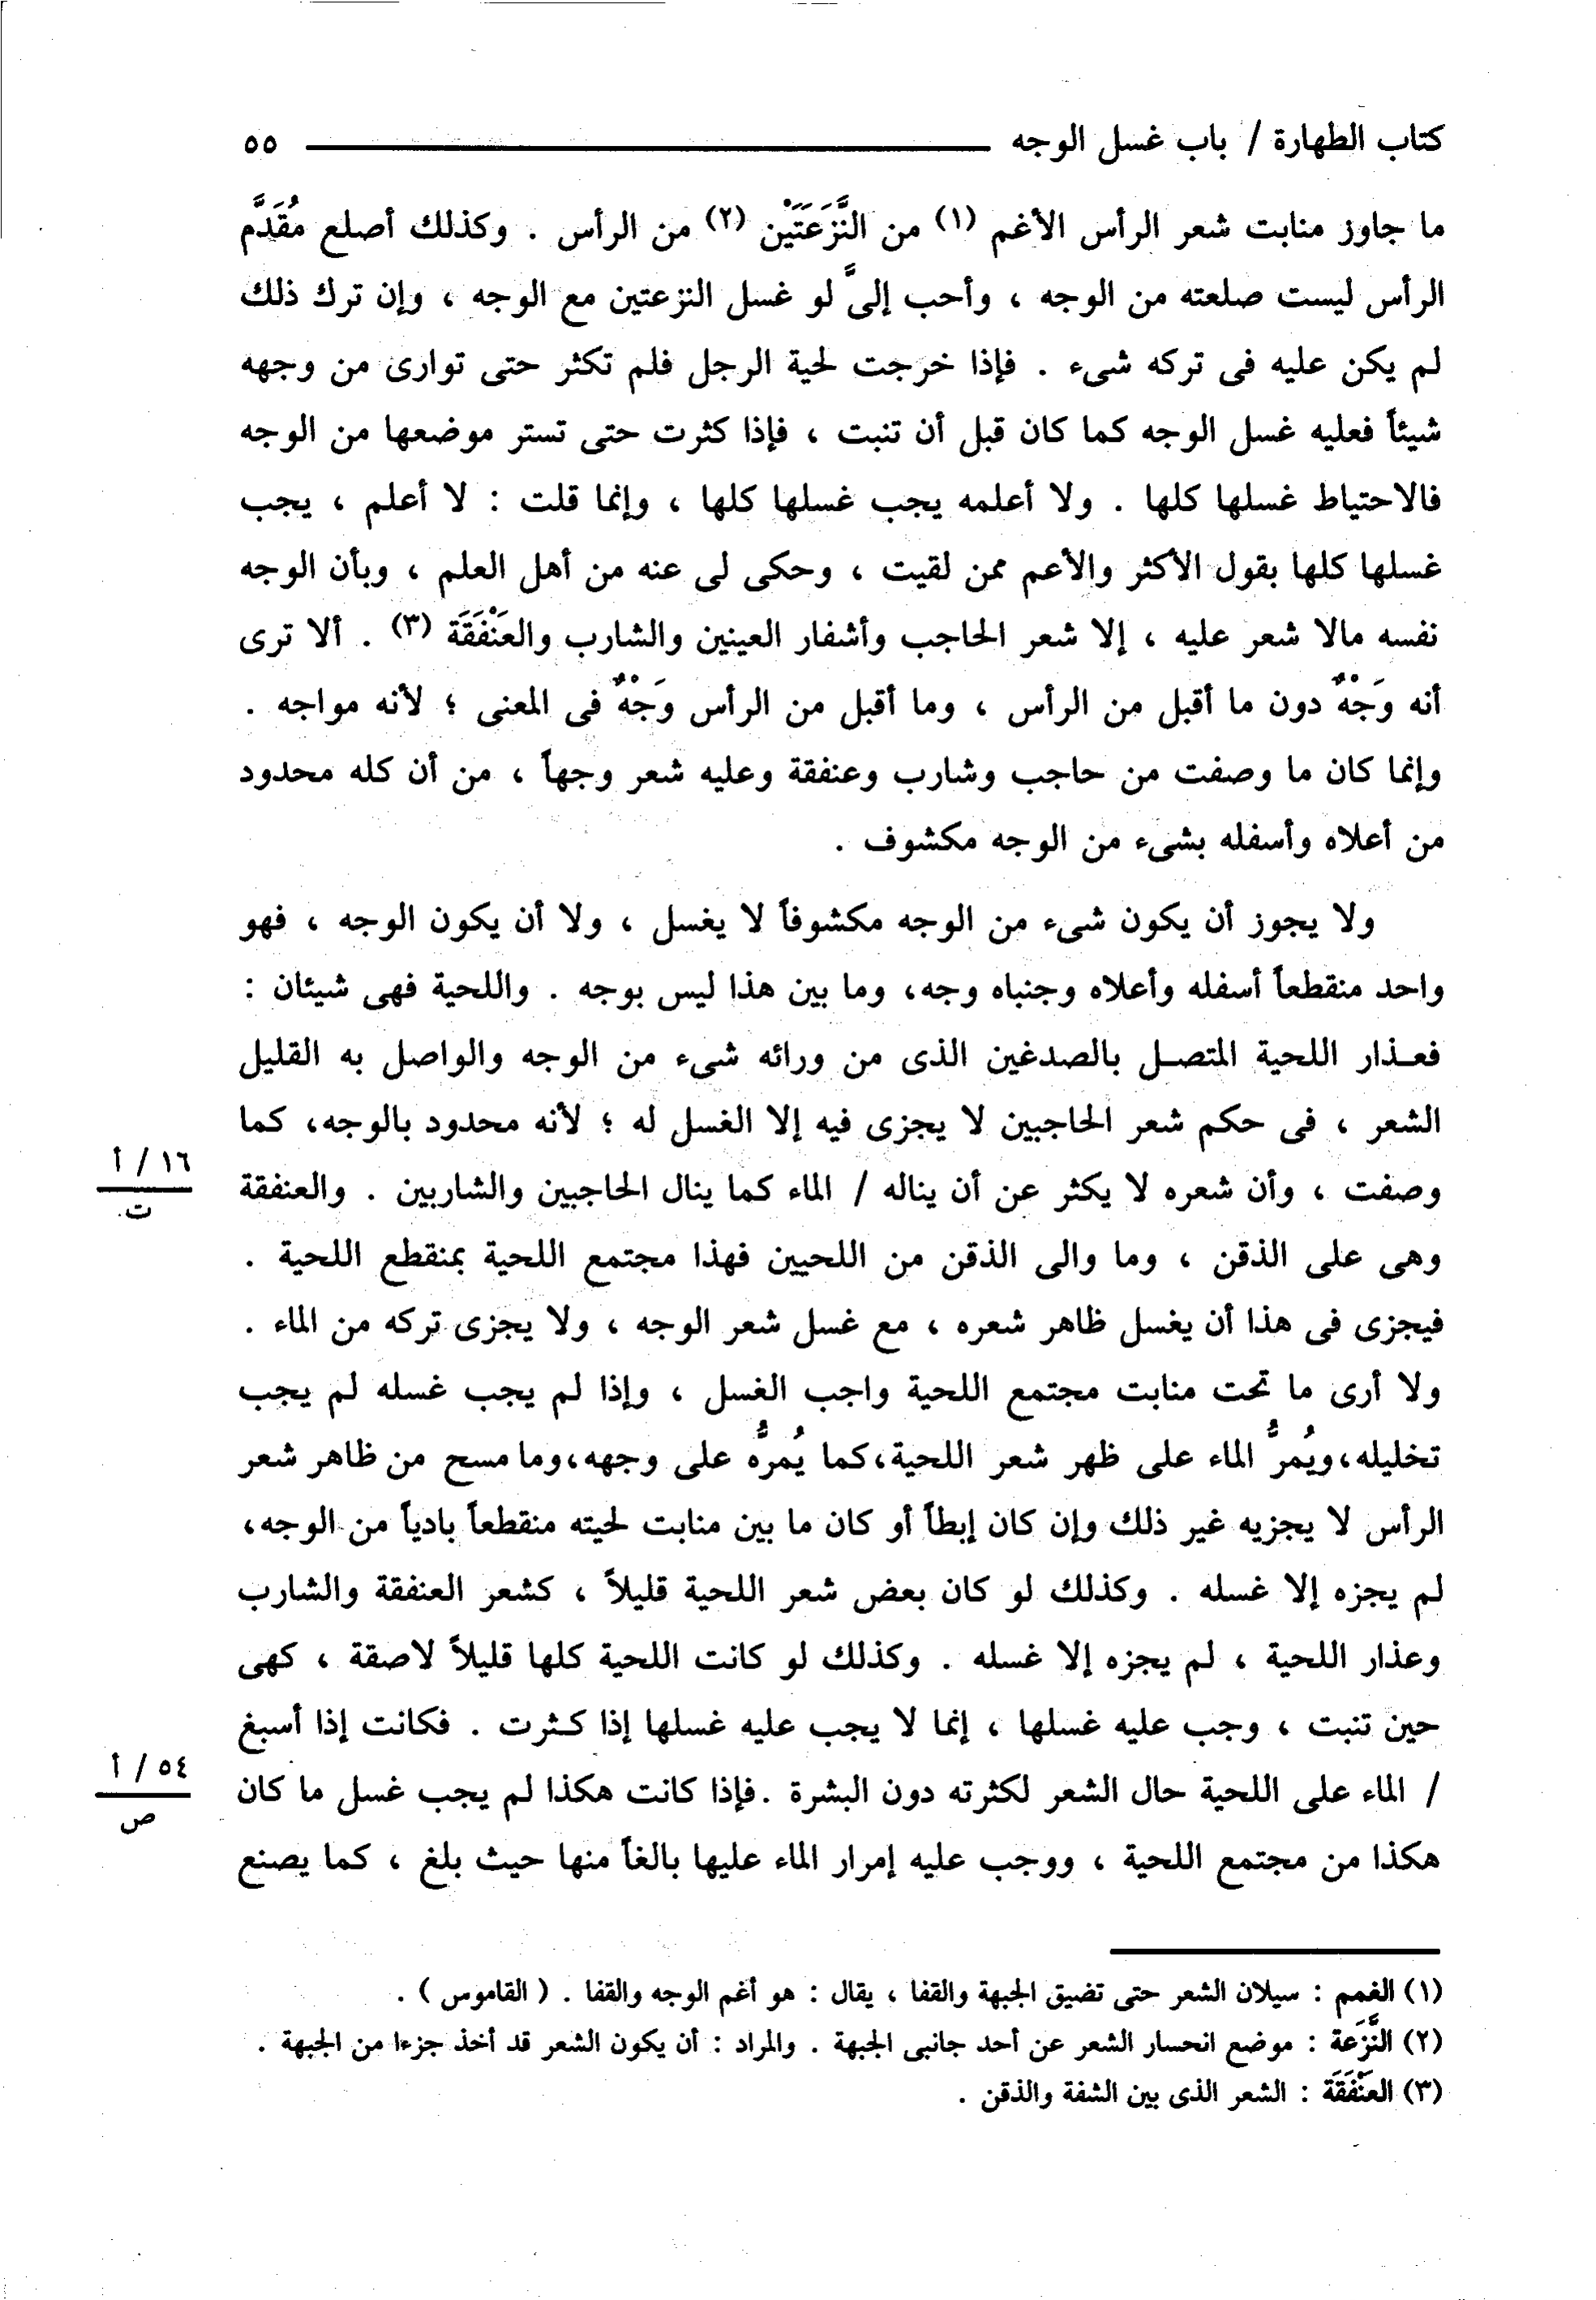 كتاب الطهارة / باب غسل الوجه ٥٥
ما جاوز منابت شعر الرأس الأغم (١) من النَّزَعَتَيْن (٢) من الرأس . وكذلك أصلع مُقَدَّم
الرأس ليست صلعته من الوجه ، وأحب إلىَّ لو غسل النزعتين مع الوجه ، وإن ترك ذلك
لم يكن عليه فى تركه شىء . فإذا خرجت لحية الرجل فلم تكثر حتى توارى من وجهه
شيئاً فعليه غسل الوجه كما كان قبل أن تنبت ، فإذا كثرت حتى تستر موضعها من الوجه
فالاحتياط غسلها كلها . ولا أعلمه يجب غسلها كلها ، وإنما قلت : لا أعلم ، يجب
غسلها كلها بقول الأكثر والأعم ممن لقيت ، وحكى لى عنه من أهل العلم ، وبأن الوجه
نفسه مالا شعر عليه ، إلا شعر الحاجب وأشفار العينين والشارب والعَنْفَقَة (٣) . ألا ترى
أنه وَجْهٌ دون ما أقبل من الرأس ، وما أقبل من الرأس وَجْهٌ فى المعنى ؛ لأنه مواجه .
وإنما كان ما وصفت من حاجب وشارب وعنفقة وعليه شعر وجهاً ، من أن كله محدود
من أعلاه وأسفله بشىء من الوجه مكشوف .
ولا يجوز أن يكون شىء من الوجه مكشوفاً لا يغسل ، ولا أن يكون الوجه ، فهو
واحد منقطعاً أسفله وأعلاه وجنباه وجه، وما بين هذا ليس بوجه . واللحية فهى شيئان :
فعـذار اللحية المتصـل بالصدغين الذى من ورائه شىء من الوجه والواصل به القليل
الشعر ، فى حكم شعر الحاجبين لا يجزى فيه إلا الغسل له ؛ لأنه محدود بالوجه، كما
وصفت ، وأن شعره لا يكثر عن أن يناله / الماء كما ينال الحاجبين والشاربين . والعنفقة
١٦ / أ
ت
وهى على الذقن ، وما والى الذقن من اللحيين فهذا مجتمع اللحية بمنقطع اللحية .
فيجزى فى هذا أن يغسل ظاهر شعره ، مع غسل شعر الوجه ، ولا يجزى تركه من الماء .
ولا أرى ما تحت منابت مجتمع اللحية واجب الغسل ، وإذا لم يجب غسله لم يجب
تخليله،ويُمرُّ الماء على ظهر شعر اللحية،كما يُمرُّه على وجهه،وما مسح من ظاهر شعر
الرأس لا يجزيه غير ذلك وإن كان إبطاً أو كان ما بين منابت لحيته منقطعاً بادياً من الوجه،
لم يجزه إلا غسله . وكذلك لو كان بعض شعر اللحية قليلاً ، كشعر العنفقة والشارب
وعذار اللحية ، لم يجزه إلا غسله . وكذلك لو كانت اللحية كلها قليلاً لاصقة ، كهى
حين تنبت ، وجب عليه غسلها ، إنما لا يجب عليه غسلها إذا كـثرت . فكانت إذا أسبغ
/ الماء على اللحية حال الشعر لكثرته دون البشرة .فإذا كانت هكذا لم يجب غسل ما كان
٥٤ / أ
ص
هكذا من مجتمع اللحية ، ووجب عليه إمرار الماء عليها بالغاً منها حيث بلغ ، كما يصنع
(١) الغمم : سيلان الشعر حتى تضيق الجبهة والقفا ، يقال : هو أغم الوجه والقفا . ( القاموس ) .
(٢) النَّزَعة : موضع انحسار الشعر عن أحد جانبى الجبهة . والمراد : أن يكون الشعر قد أخذ جزءا من الجبهة .
(٣) العَنْفَقَة : الشعر الذى بين الشفة والذقن .